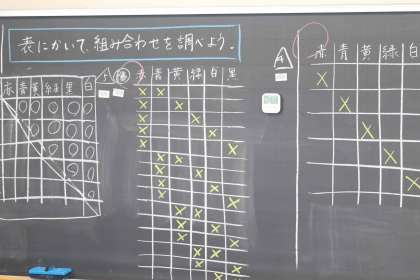 表にかいて、組み合わせを調べよう。
赤 青 黄 緑 黒 白
赤 青 黄 緑 白 黒
赤 青 黄 緑 白